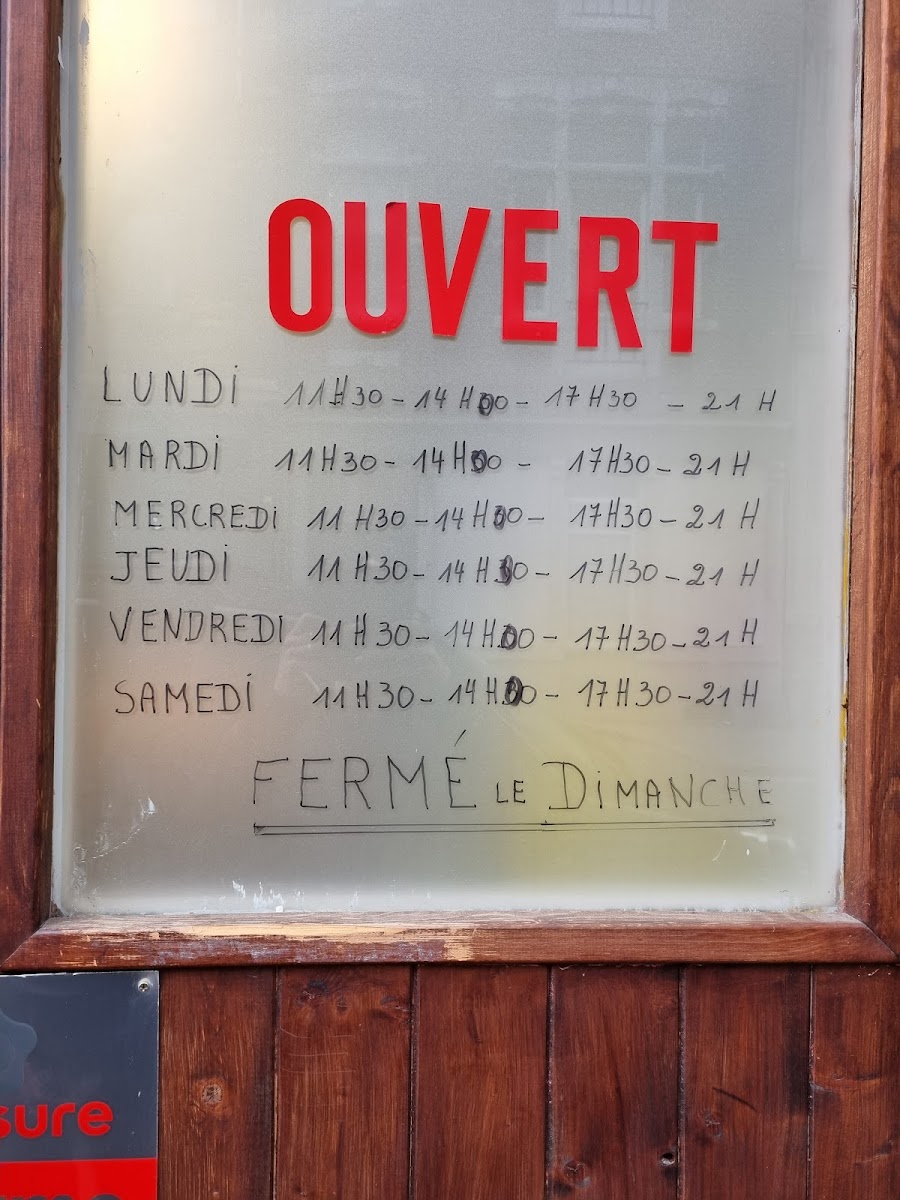 OUVERT
LUNDi 11H30 - 14H00 - 17H30 - 21H
MARDi 11H30 - 14H00 - 17H30 - 21H
MERCREDi 11H30 - 14H00 - 17H30 - 21H
JEUDi 11H30 - 14H00 - 17H30 - 21H
VENDREDI 11H30 - 14H00 - 17H30 - 21H
SAMEDi 11H30 - 14H00 - 17H30 - 21H
FERMÉ LE DiMANCHE
sure